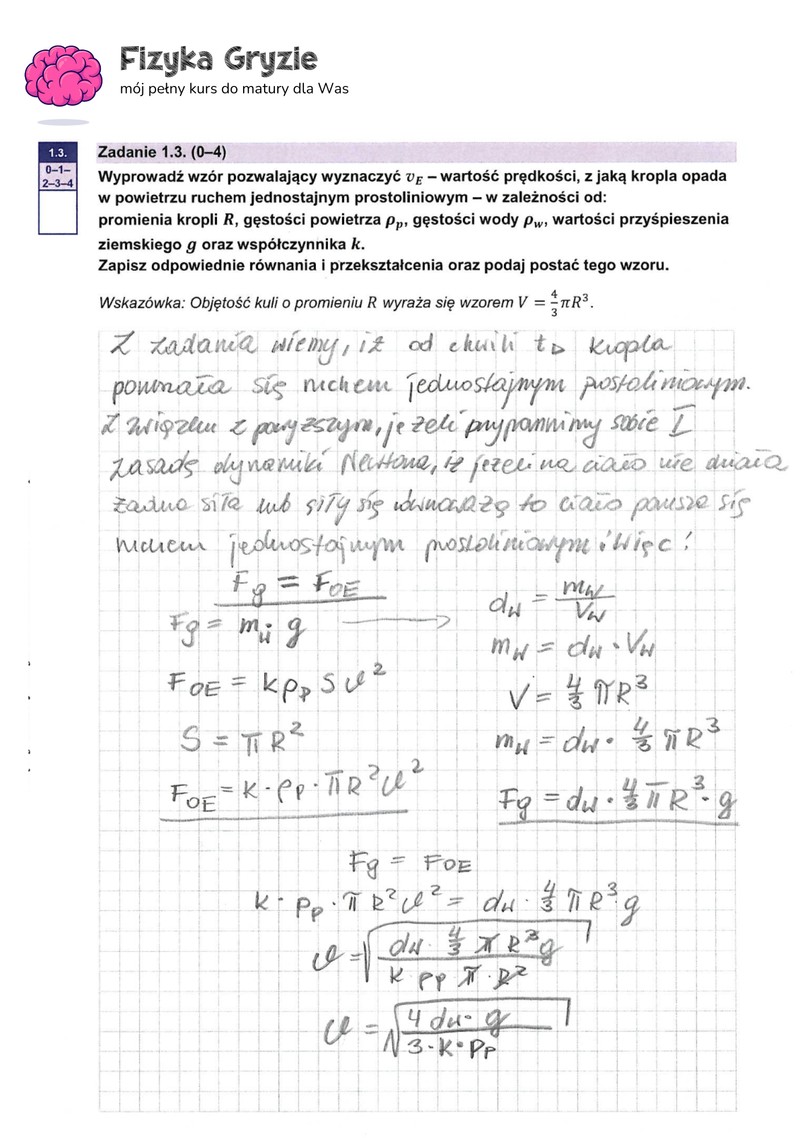 Fizyka Gryzie
mój pełny kurs do matury dla Was
1.3.
0–1–
2–3–4
Zadanie 1.3. (0–4)
Wyprowadź wzór pozwalający wyznaczyć v_E – wartość prędkości, z jaką kropla opada
w powietrzu ruchem jednostajnym prostoliniowym – w zależności od:
promienia kropli R, gęstości powietrza ρ_p, gęstości wody ρ_w, wartości przyśpieszenia
ziemskiego g oraz współczynnika k.
Zapisz odpowiednie równania i przekształcenia oraz podaj postać tego wzoru.
Wskazówka: Objętość kuli o promieniu R wyraża się wzorem V = 4/3 πR³.
Z zadania wiemy, iż od chwili t_D kropla
porusza się ruchem jednostajnym prostoliniowym.
Z związku z powyższym, jeżeli przypomnimy sobie I
zasadę dynamiki Newtona, iż jeżeli na ciało nie działa
żadna siła lub siły się równoważą to ciało porusza się
ruchem jednostajnym prostoliniowym i więc:
Fg = F_OE
Fg = m_w · g →
F_OE = kρ_p S v²
S = πR²
F_OE = k · ρ_p · πR² v²
d_w = m_w / V_w
m_w = d_w · V_w
V = 4/3 πR³
m_w = d_w · 4/3 πR³
Fg = d_w · 4/3 πR³ · g
Fg = F_OE
k · ρ_p · πR² v² = d_w · 4/3 πR³ g
v = √(d_w · 4/3 πR³ g / k ρ_p π · R²)
v = √(4 d_w · g / 3 · k · ρ_p)